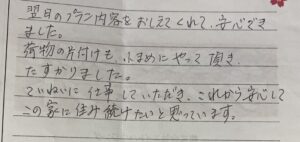 翌日のプラン内容をおしえてくれて、安心でき
ました。
荷物の片付けも、小まめにやって頂き、
たすかりました。
ていねいに仕事していただき、これから安心して
この家に住み続けたいと思っています。